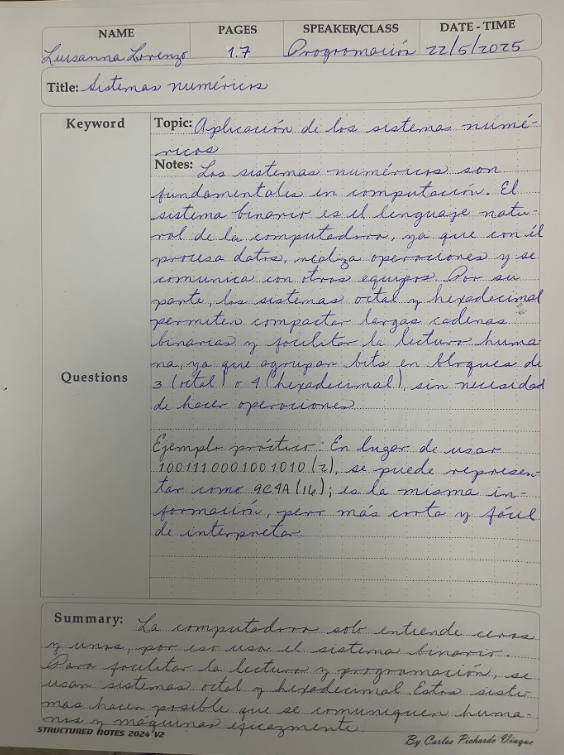 NAME PAGES SPEAKER/CLASS DATE - TIME
Luisanna Lorenzo 1.7 Programación 22/5/2025
Title: Sistemas numéricos
Keyword
Topic: Aplicación de los sistemas numé-
ricos
Notes: Los sistemas numéricos son
fundamentales en computación. El
sistema binario es el lenguaje natu-
ral de la computadora, ya que con él
procesa datos, realiza operaciones y se
comunica con otros equipos. Por su
parte, los sistemas octal y hexadecimal
permiten compactar largas cadenas
binarias y facilitar la lectura huma-
na, ya que agrupan bits en bloques de
Questions
3 (octal) o 4 (hexadecimal), sin necesidad
de hacer operaciones.
Ejemplo práctico: En lugar de usar
1001110001001010 (2), se puede represen-
tar como 9C4A (16); es la misma in-
formación, pero más corta y fácil
de interpretar.
Summary: La computadora solo entiende ceros
y unos, por eso usa el sistema binario.
Para facilitar la lectura y programación, se
usan sistemas octal y hexadecimal. Estos siste-
mas hacen posible que se comuniquen huma-
nos y máquinas eficazmente.
STRUCTURED NOTES 2024 V2
By Carlos Pichardo Viuque